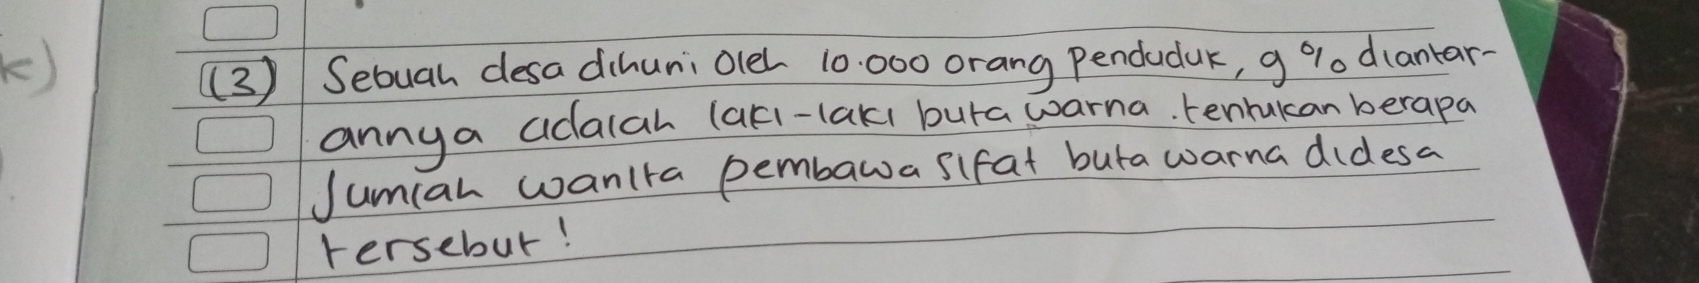 k)
(3) Sebuah desa dihuni oleh 10.000 orang penduduk, 9 % diantar-
annya adalah laki-laki buta warna. tentukan berapa
Jumlah wanita pembawa sifat buta warna didesa
tersebut!